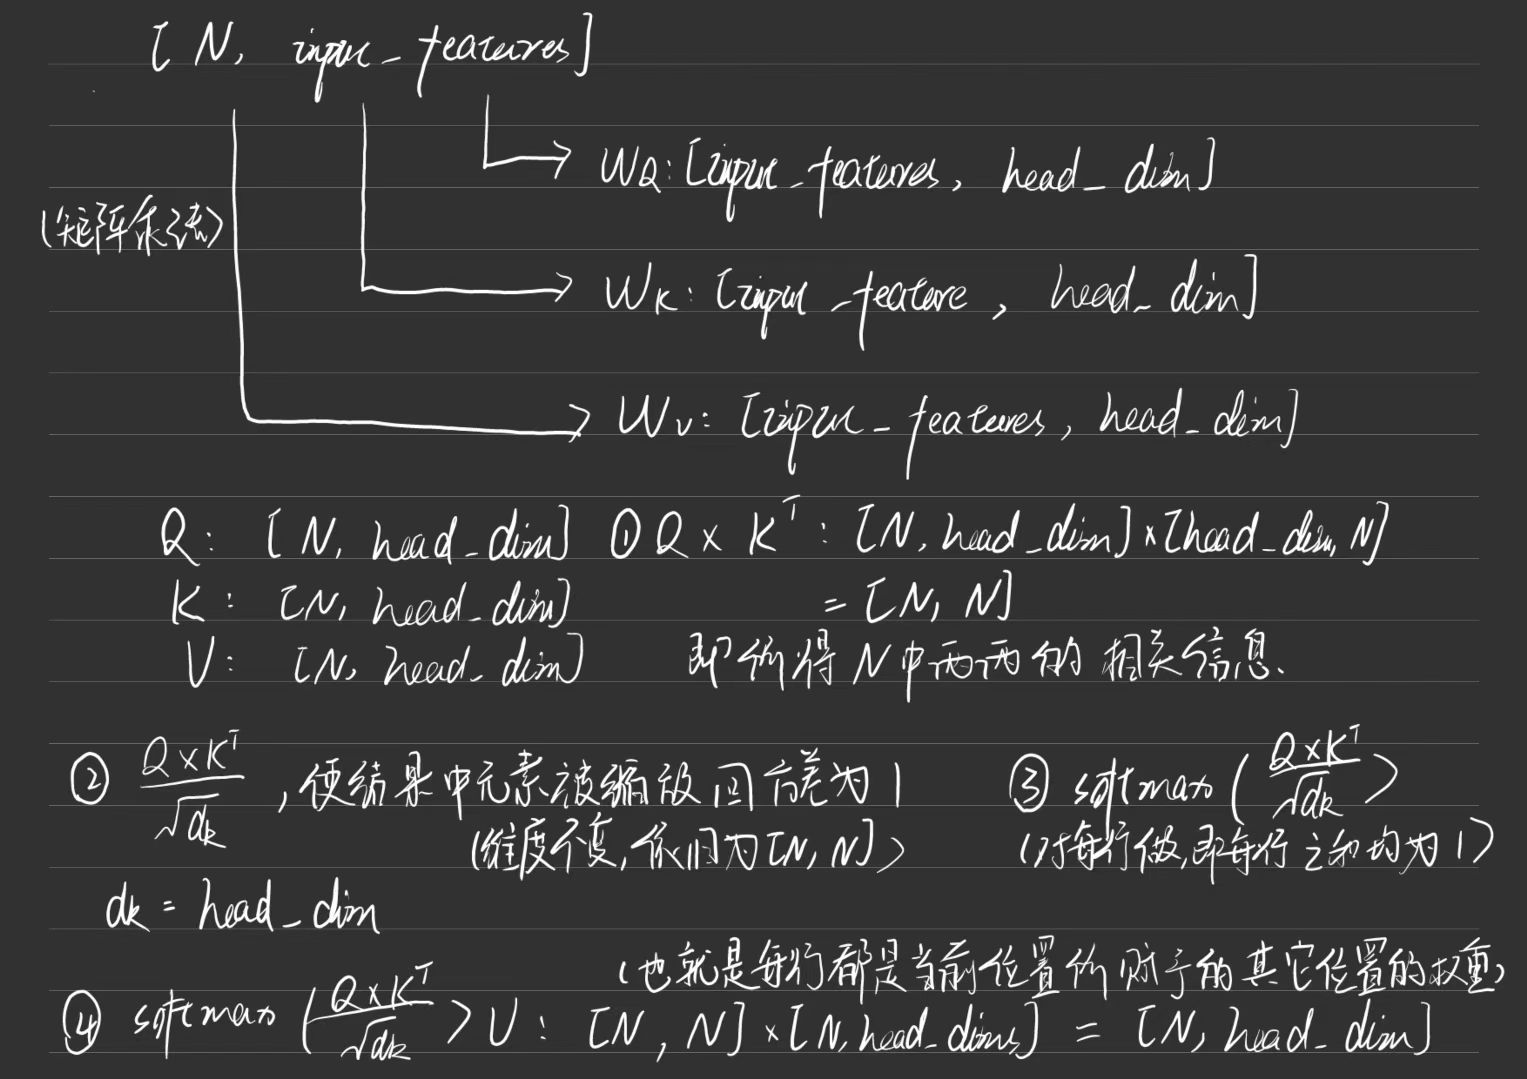 [N, input_features]
WQ: [input_features, head_dim]
(矩阵乘法)
WK: [input_feature, head_dim]
WV: [input_features, head_dim]
Q: [N, head_dim] ① Q × K^T: [N, head_dim] × [head_dim, N]
K: [N, head_dim] = [N, N]
V: [N, head_dim] 即所得N中两两的相关信息.
② Q×K^T / √dk , 使结果中元素被缩放回方差为1 ③ softmax(Q×K^T / √dk)
(维度不变, 依旧为[N, N]) (对每行做, 即每行之和均为1)
dk = head_dim
(也就是每行都是当前位置所赋予的其它位置的权重)
④ softmax(Q×K^T / √dk) V: [N, N] × [N, head_dims] = [N, head_dim]